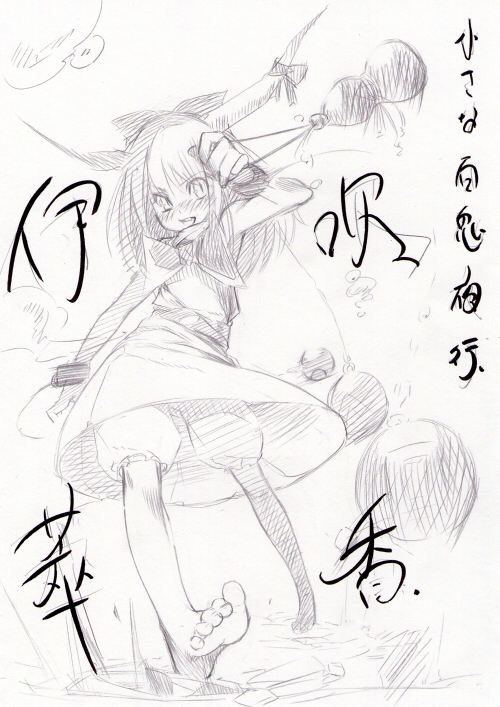 小さな百鬼夜行
伊吹
萃香.